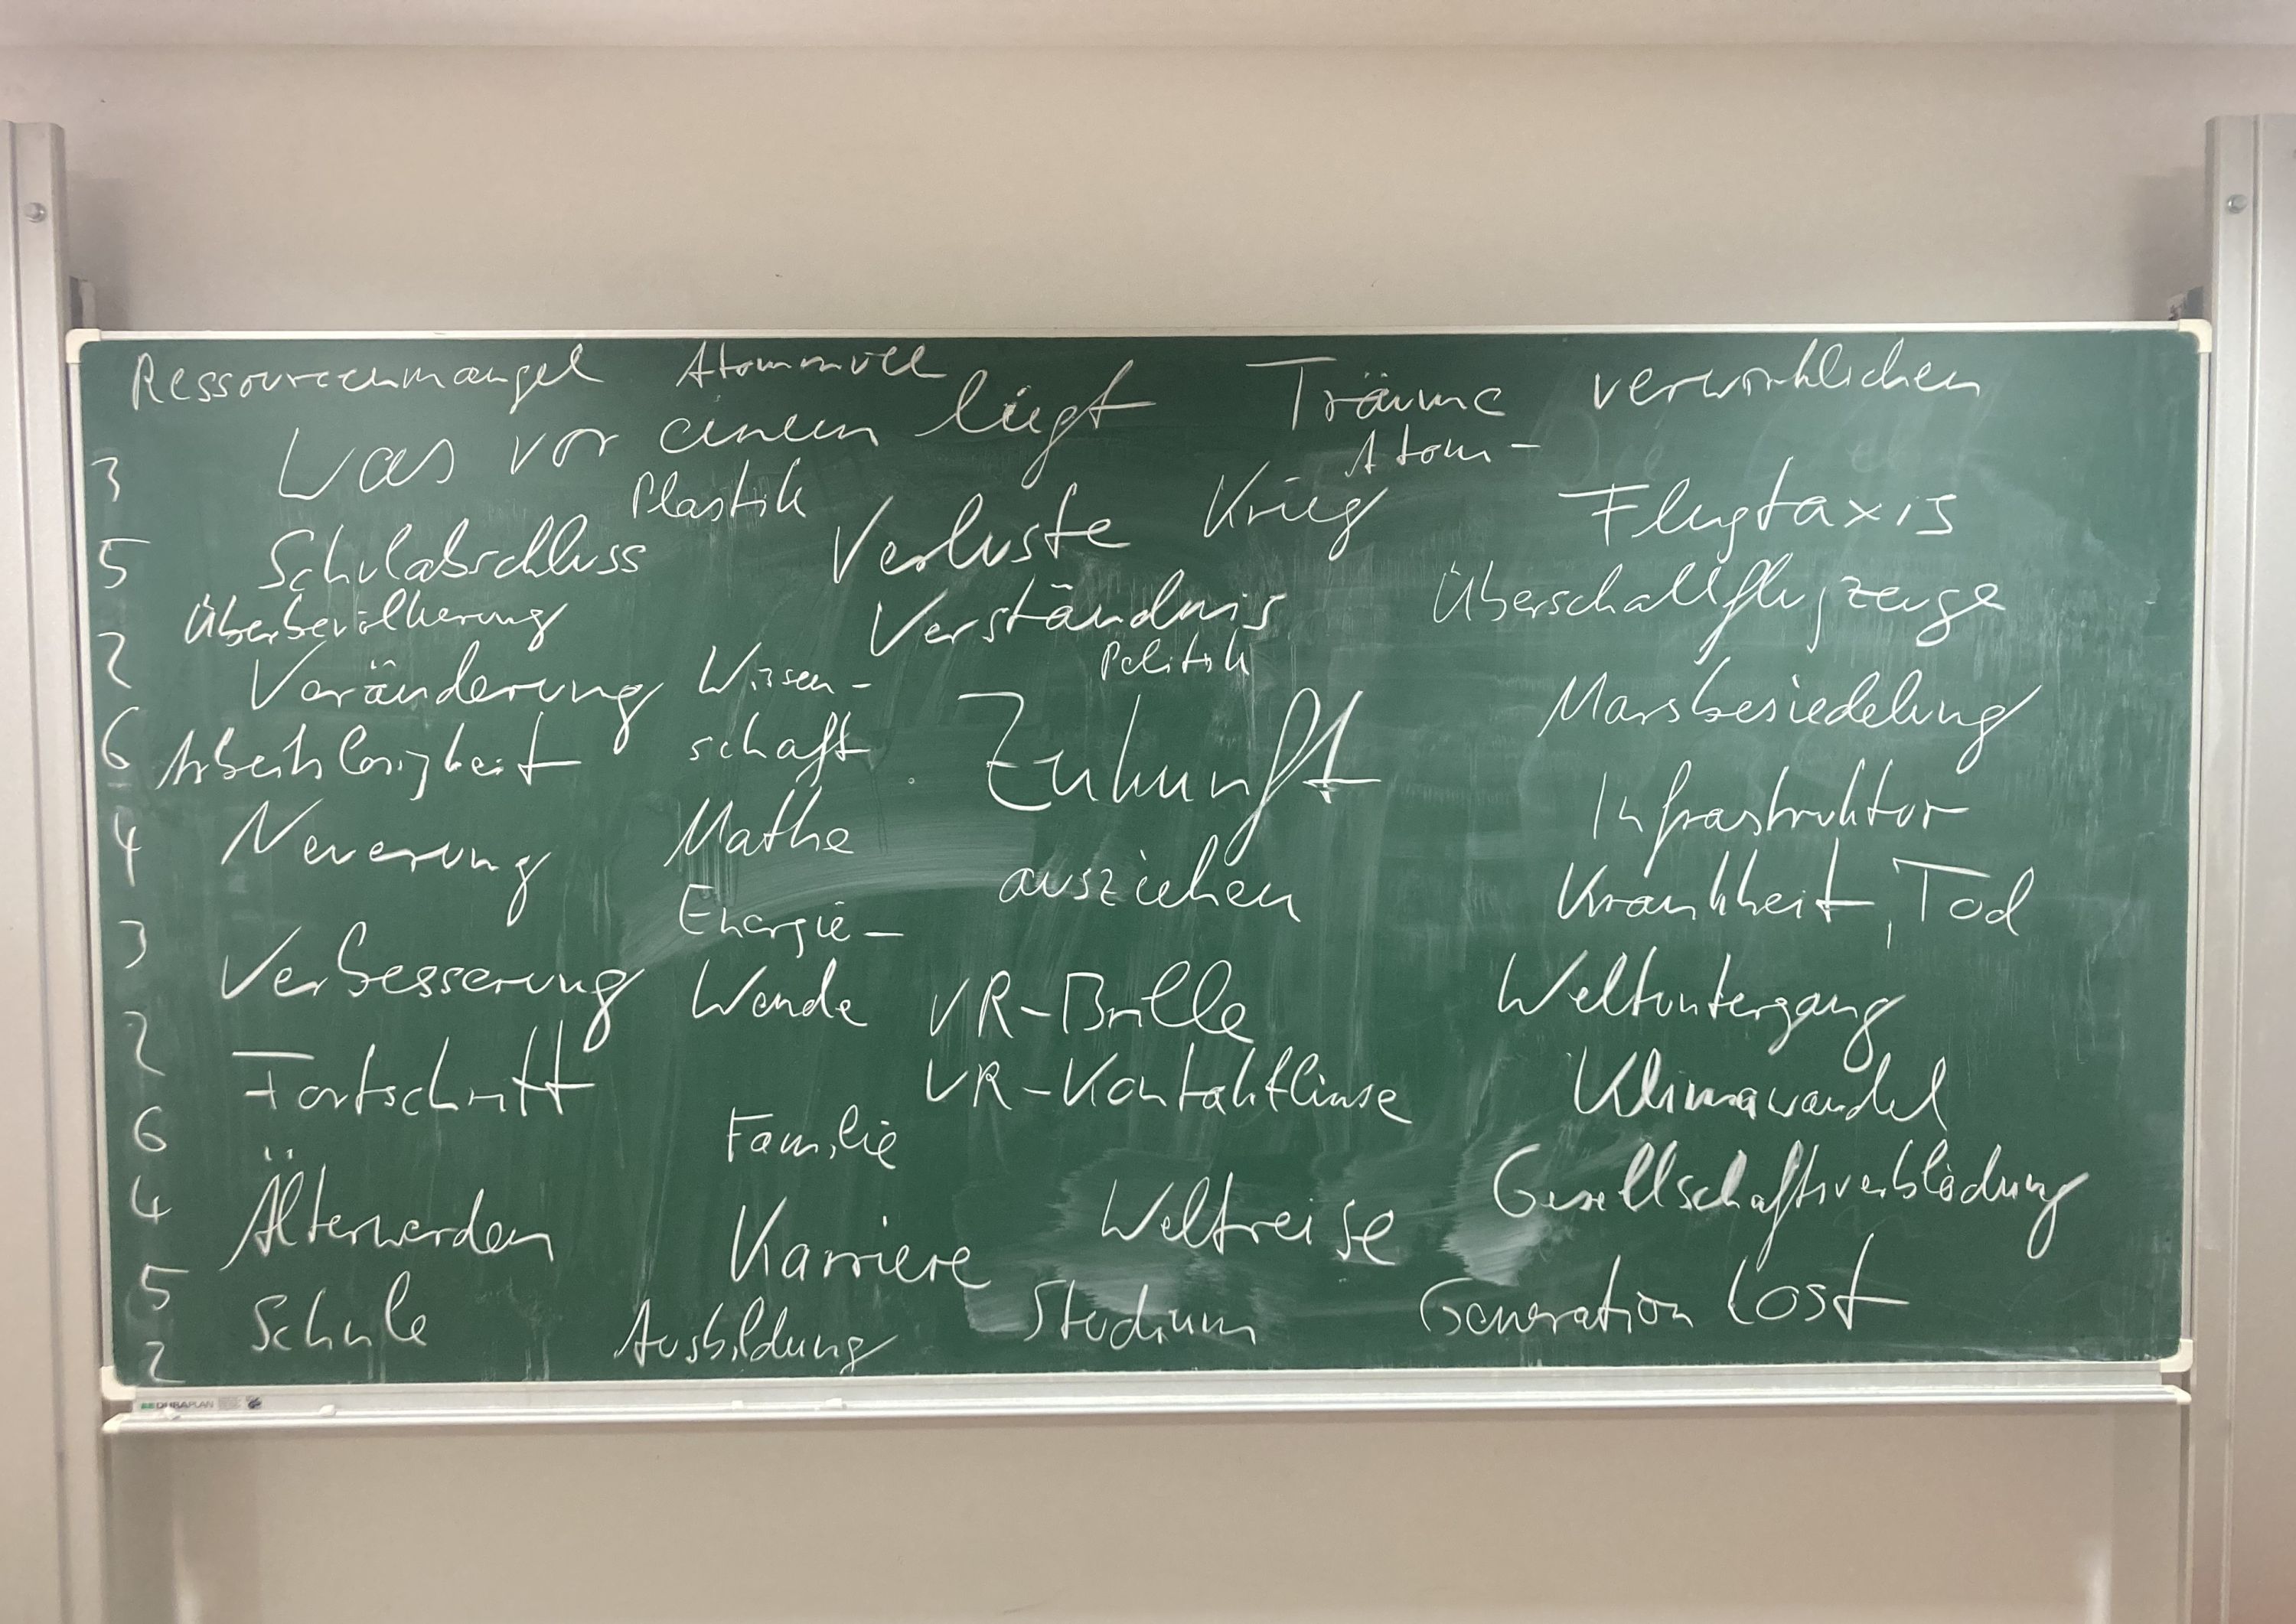 Ressourcenmangel Atommüll Träume verwirklichen
Was vor einem liegt
Atom-
3
Plastik Krieg Flugtaxis
5 Schulabschluss Verluste
Überbevölkerung Verständnis Überschallflugzeuge
2 Veränderung Wissen- Politik
schaft Zukunft Marsbesiedelung
6 Arbeitslosigkeit
4 Neuerung Mathe Infrastruktur
ausziehen Krankheit, Tod
3 Energie-
Verbesserung Wende VR-Brille Weltuntergang
2 Fortschritt VR-Kontaktlinse Klimawandel
6 Familie
4 Älterwerden Karriere Weltreise Gesellschaftsverblödung
5 Schule Ausbildung Studium Generation Lost
2
DURAPLAN